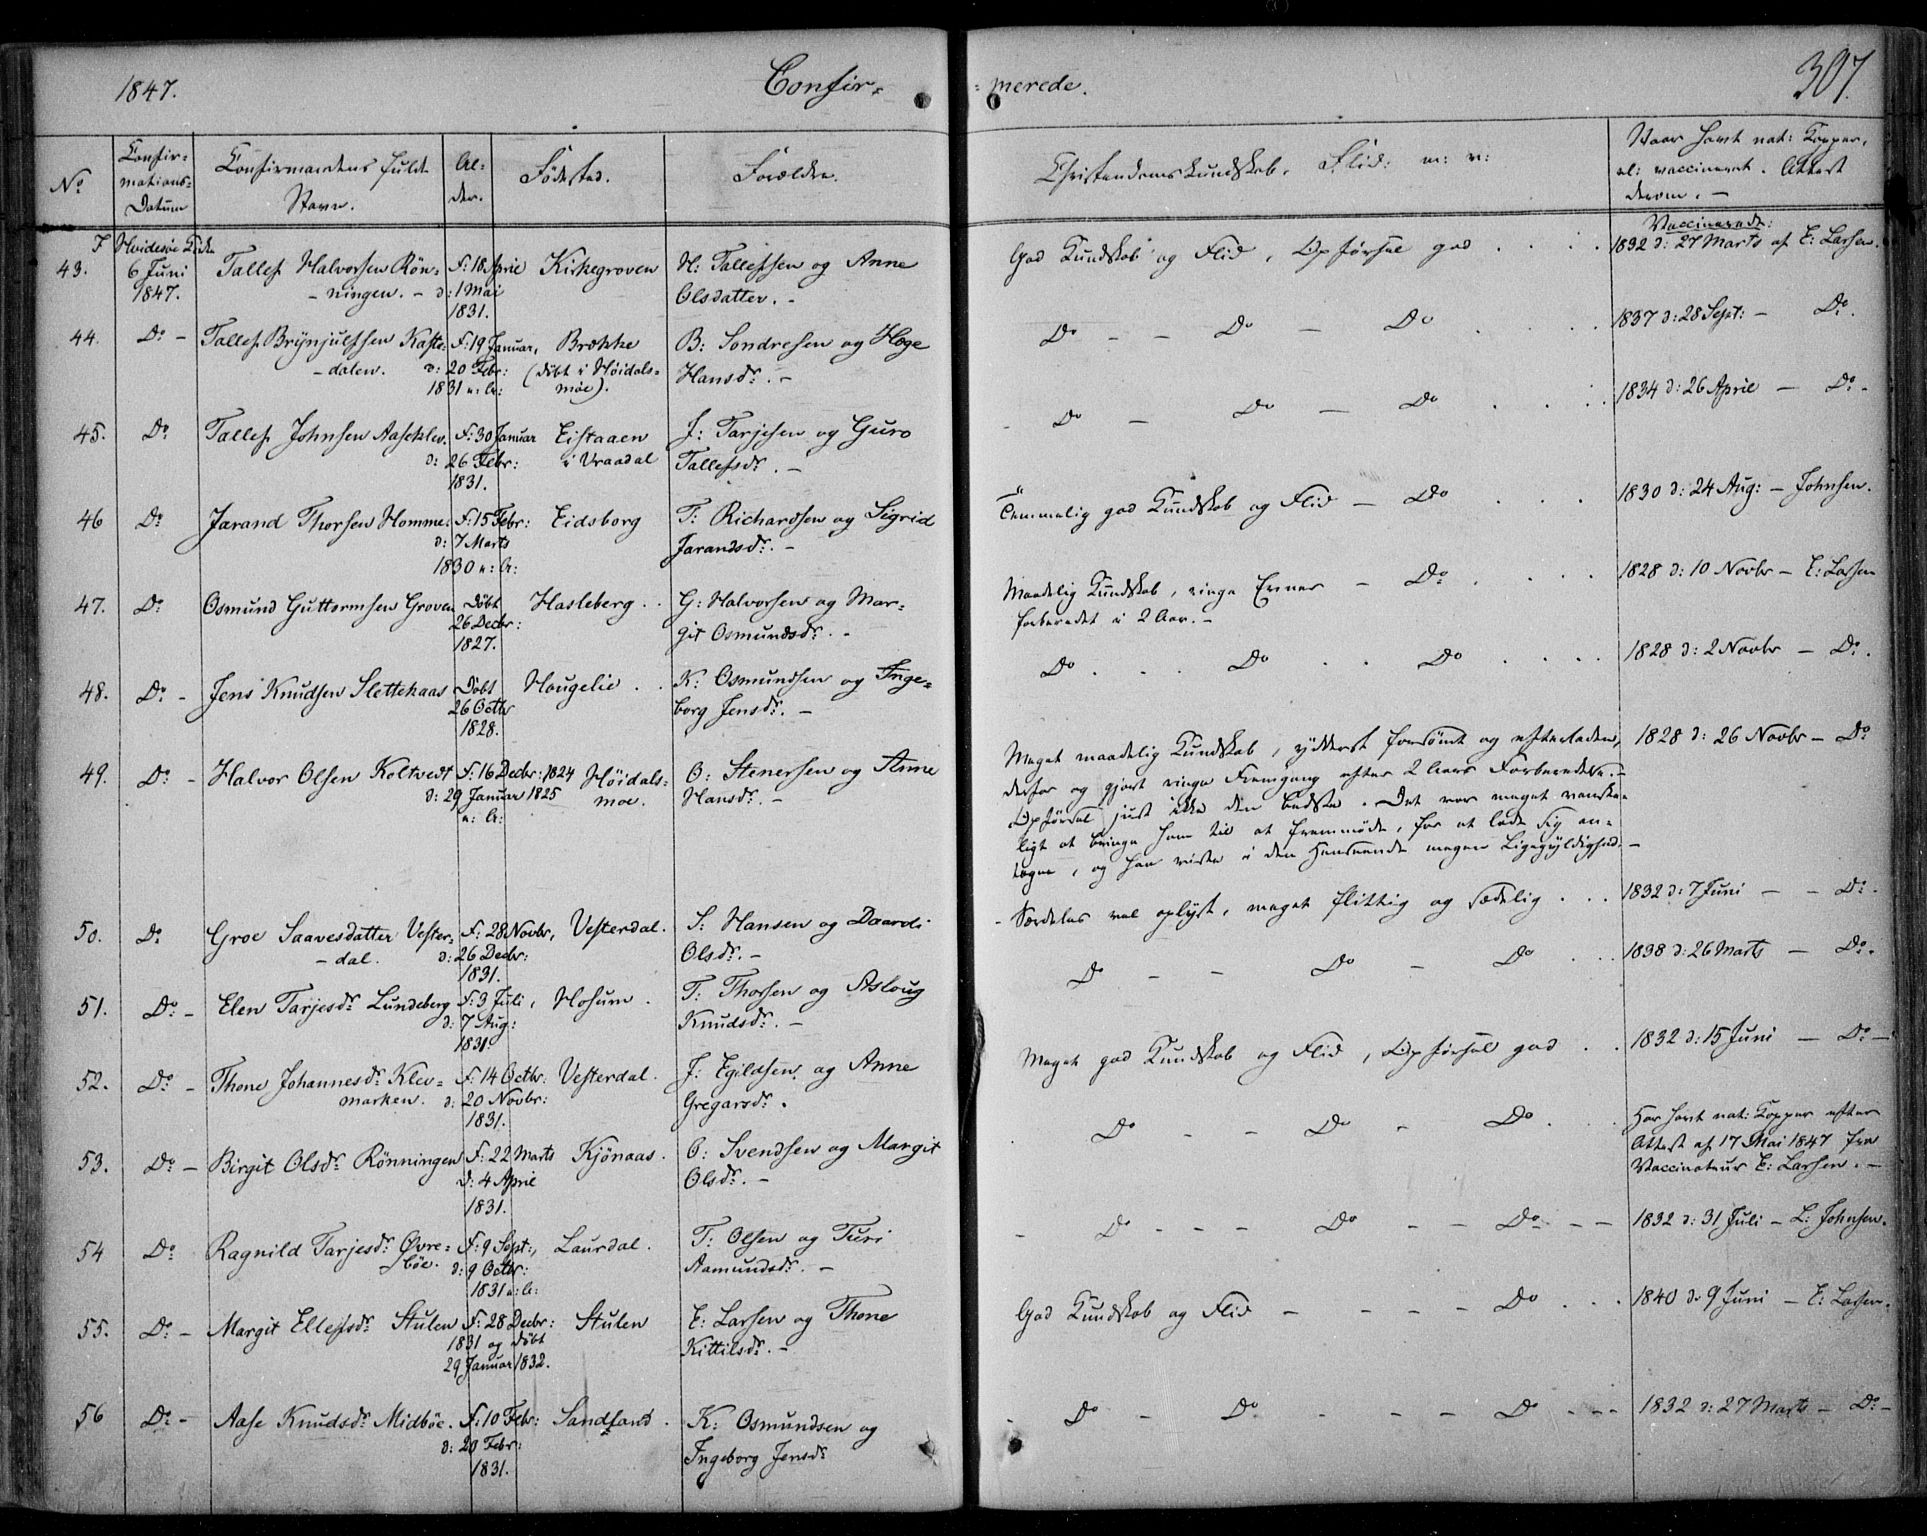 1847. Confir-merede. 307.
No Confir-mations-Datum Confirmandens fulde Navn. Al-der. Fødested. Forældre. Christendomskundskab, Flid: m: v: Naar havt nat: Kopper, el: vaccineret. Attest derom. —
I Hvidesøe Kirke Vaccinerede:
43. 6 Juni Tallef Halvorsen Røn- F: 18 April Kirkegroven H: Tallefsen og Anne God Kundskab og Flid, Opførsel god . . . . 1832 d: 27 Marts af E: Larsen.
1847. - ningen. - d: 1 Mai Olsdatter. -
1831.
44. Do - Tallef Brynjulfsen Kaste- F: 19 Januar, Brække B: Sondresen og Hæge Do - - Do - Do . . . . 1837 d: 28 Sept: - Do.
- dalen. d: 20 Febr: (døbt i Høidals- Hansdr. -
1831 u: A: møe).
45. Do Tallef Johnsen Aaseklev. F: 30 Januar Eistaaen J: Tarjesen og Guro Do - Do - Do . . . . 1834 d: 26 April - Do -
d: 26 Febr: i Vraadal Tallefsdr. -
1831.
46 Do Jarand Thorsen Homme. F: 15 Febr: Eidsborg T: Richardsen og Sigrid Temmelig god Kundskab og Flid - Do . . . 1830 d: 24 Aug: - Johnsen.
d: 7 Marts Jarandsdr. -
1830 u: A:
47. Do Osmund Guttormsen Groven Døbt Hasleberg . . G: Halvorsen og Mar- Maadelig Kundskab, ringe Evner - Do . . . . 1828 d: 10 Novbr - E: Larsen
26 Decbr: git Osmundsdr. - forberedet i 2 Aar. -
1827.
48. Do - Jens Knudsen Slettehaas Døbt Hougelie . . K: Osmundsen og Inge- Do . . . Do . . Do . . . . 1828 d: 2 Novbr - Do.
26 Octbr borg Jensdr. -
1828.
49. Do - Halvor Olsen Koltvedt F: 16 Decbr: 1824 Høidals- O: Stenersen og Anne Meget maadelig Kundskab, yderst forsømt og efterladen, 1828 d: 26 Novbr - Do
d: 29 Januar 1825 moe. Hansdr. - derfor og gjort ringe Fremgang efter 2 Aars Forberedelse. -
u: A: Opførsel just ikke den bedste. Det var meget vanske-
ligt at bringe ham til at fremmøde, for at lade sig an-
tegne, og han viste i den Henseende megen Ligegyldighed. -
50. Do Groe Saavesdatter Vester- F: 28 Novbr, Vesterdal. S: Hansen og Daardi - Særdeles vel oplyst, meget flittig og sædelig . . . 1832 d: 7 Juni - - Do -
- dal. d: 26 Decbr: Olsdr. -
1831.
51. Do - Elen Tarjesdr Lundeberg F: 3 Juli, Hosum . T: Thorsen og Asloug Do - - Do - Do . . . 1838 d: 26 Marts - Do.
d: 7 Aug: Knudsdr. -
1831.
52. Do - Thone Johannesdr Klev- F: 14 Octbr: Vesterdal. J: Egildsen og Anne Meget god Kundskab og Flid, Opførsel god . . 1832 d: 15 Juni - Do -
marken. d: 20 Novbr: Gregarsdr.
1831.
53. Do - Birgit Olsdr Rønningen F: 22 Marts Kjønaas. O: Svendsen og Margit Do - - Do - Do . . . Har havt nat: Kopper efter
d: 4 April Olsdr. - Attest af 17 Mai 1847 fra
1831. Vaccinateur E: Larsen. -
54 Do Ragnild Tarjesdr Øvre- F: 9 Sept:, Laurdal. T: Olsen og Turi - Do - - - Do - - Do - - 1832 d: 31 Juli - L: Johnsen.
bøe. d: 9 Octbr: Aamundsdr. -
1831 u: A:
55. Do - Margit Ellefsdr Stulen F: 28 Decbr: Stulen E: Larsen og Thone God Kundskab og Flid - - - - Do . . . 1840 d. 9 Juni - E: Larsen.
1831 og døbt Kittilsdr. -
29 Januar 1832.
56 Do - Aase Knudsdr Midbøe. F: 10 Febr: Sandland. K: Osmundsen og - Do - Do - - - Do - - - 1832 d: 27 Marts - Do -
d: 20 Febr: Ingeborg Jensdr
1831.